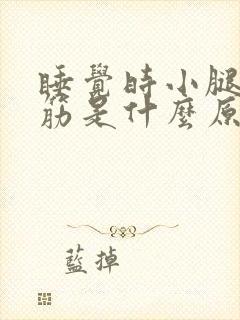 睡覺時小腿
筋是什麼原
藍掉